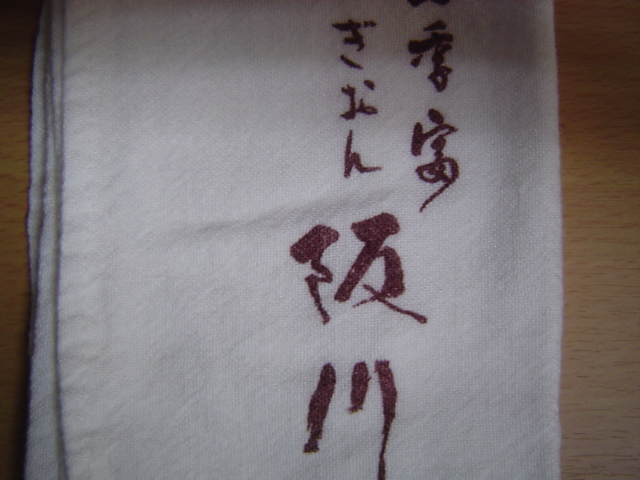 季富
ぎおん
阪川